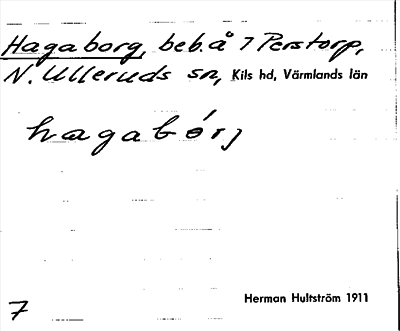 Hagaborg, beb. å 7 Perstorp,
N. Ulleruds sn, Kils hd, Värmlands län
hagabórj
7
Herman Hultström 1911